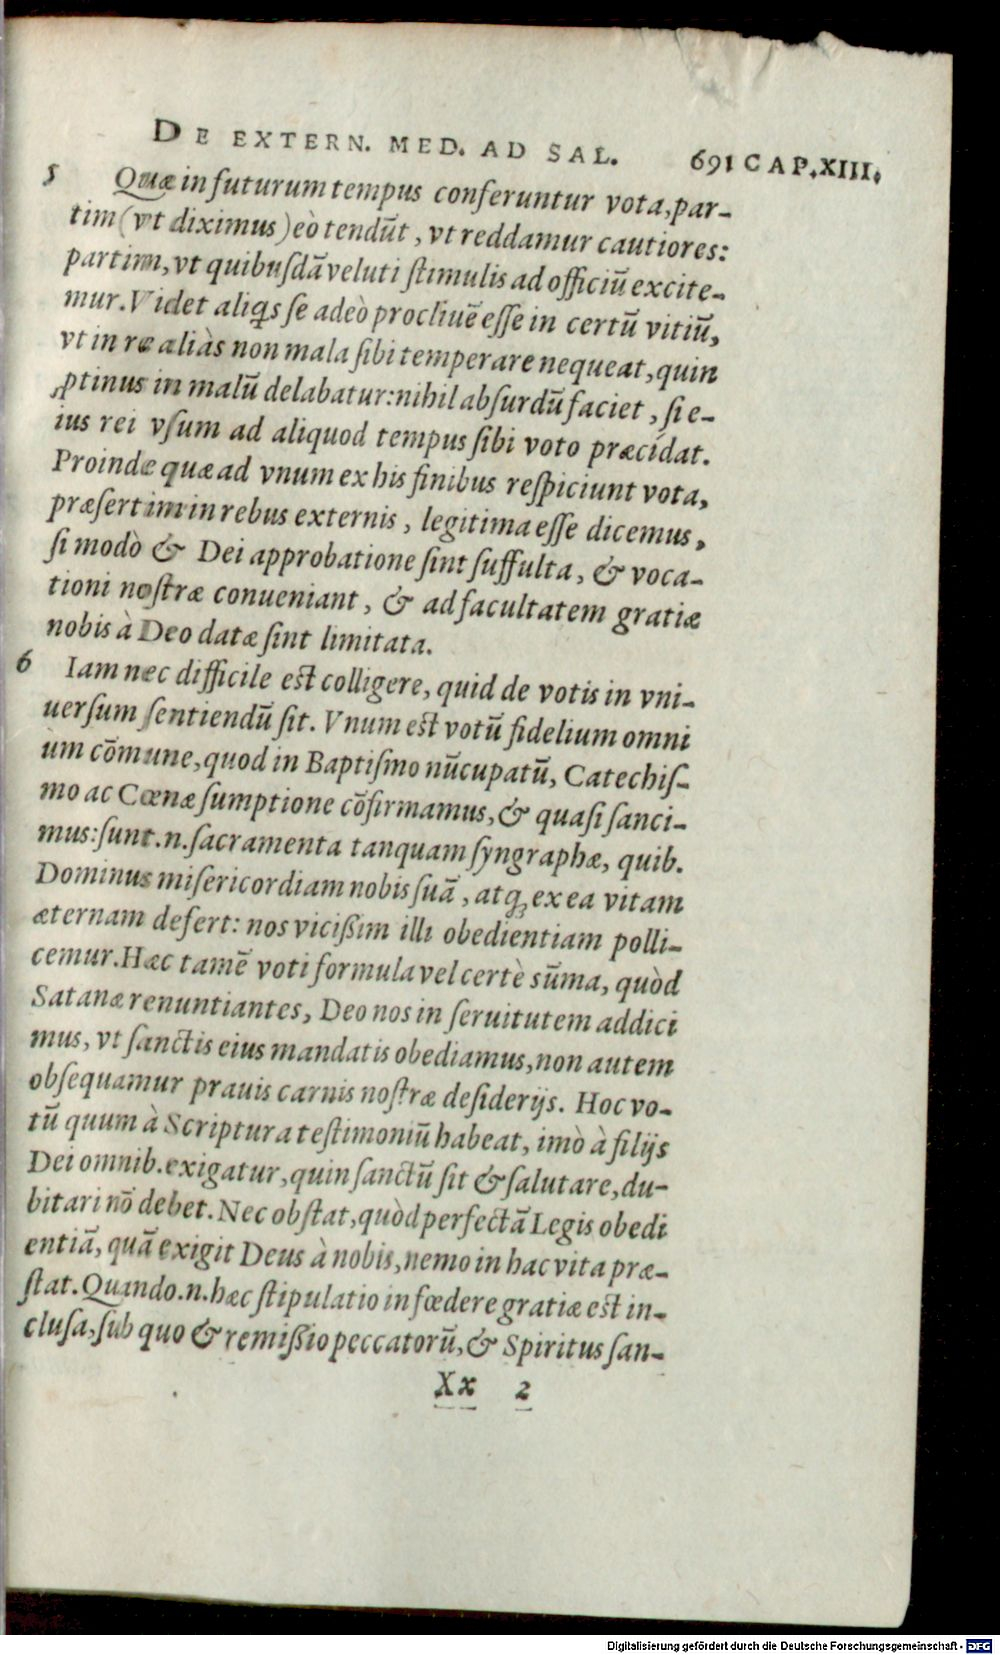 DE EXTERN. MED. AD SAL. 691 CAP. XIII.
5 Quæ in futurum tempus conferuntur vota, par-
tim (vt diximus) eò tendũt, vt reddamur cautiores:
partim, vt quibusdã veluti stimulis ad officiũ excite-
mur. Videt aliqs se adeò procliuẽ esse in certũ vitiũ,
vt in re aliàs non mala sibi temperare nequeat, quin
ꝓtinus in malũ delabatur: nihil absurdũ faciet, si e-
ius rei vsum ad aliquod tempus sibi voto præcídat.
Proinde quæ ad vnum ex his finibus respiciunt vota,
præsertim in rebus externis, legitima esse dicemus,
si modò & Dei approbatione sint suffulta, & voca-
tioni nostræ conueniant, & ad facultatem gratiæ
nobis à Deo datæ sint limitata.
6 Iam nec difficile est colligere, quid de votis in vni-
uersum sentiendũ sit. Vnum est votũ fidelium omni
um cõmune, quod in Baptismo nũcupatũ, Catechis-
mo ac Cœnæ sumptione cõfirmamus, & quasi sanci-
mus: sunt.n. sacramenta tanquam syngraphæ, quib.
Dominus misericordiam nobis suã, atq; ex ea vitam
æternam defert: nos vicißim illi obedientiam polli-
cemur. Hæc tamẽ voti formula vel certè sũma, quòd
Satanæ renuntiantes, Deo nos in seruitutem addici
mus, vt sanctis eius mandatis obediamus, non autem
obsequamur prauis carnis nostræ desiderijs. Hoc vo-
tũ quum à Scriptura testimoniũ habeat, imò à filijs
Dei omnib. exigatur, quin sanctũ sit & salutare, du-
bitari nõ debet. Nec obstat, quòd perfectã Legis obedi
entiã, quã exigit Deus à nobis, nemo in hac vita præ-
stat. Quando.n. hæc stipulatio in fœdere gratiæ est in-
clusa, sub quo & remißio peccatorũ, & Spiritus san-
Xx 2
Digitalisierung gefördert durch die Deutsche Forschungsgemeinschaft - DFG